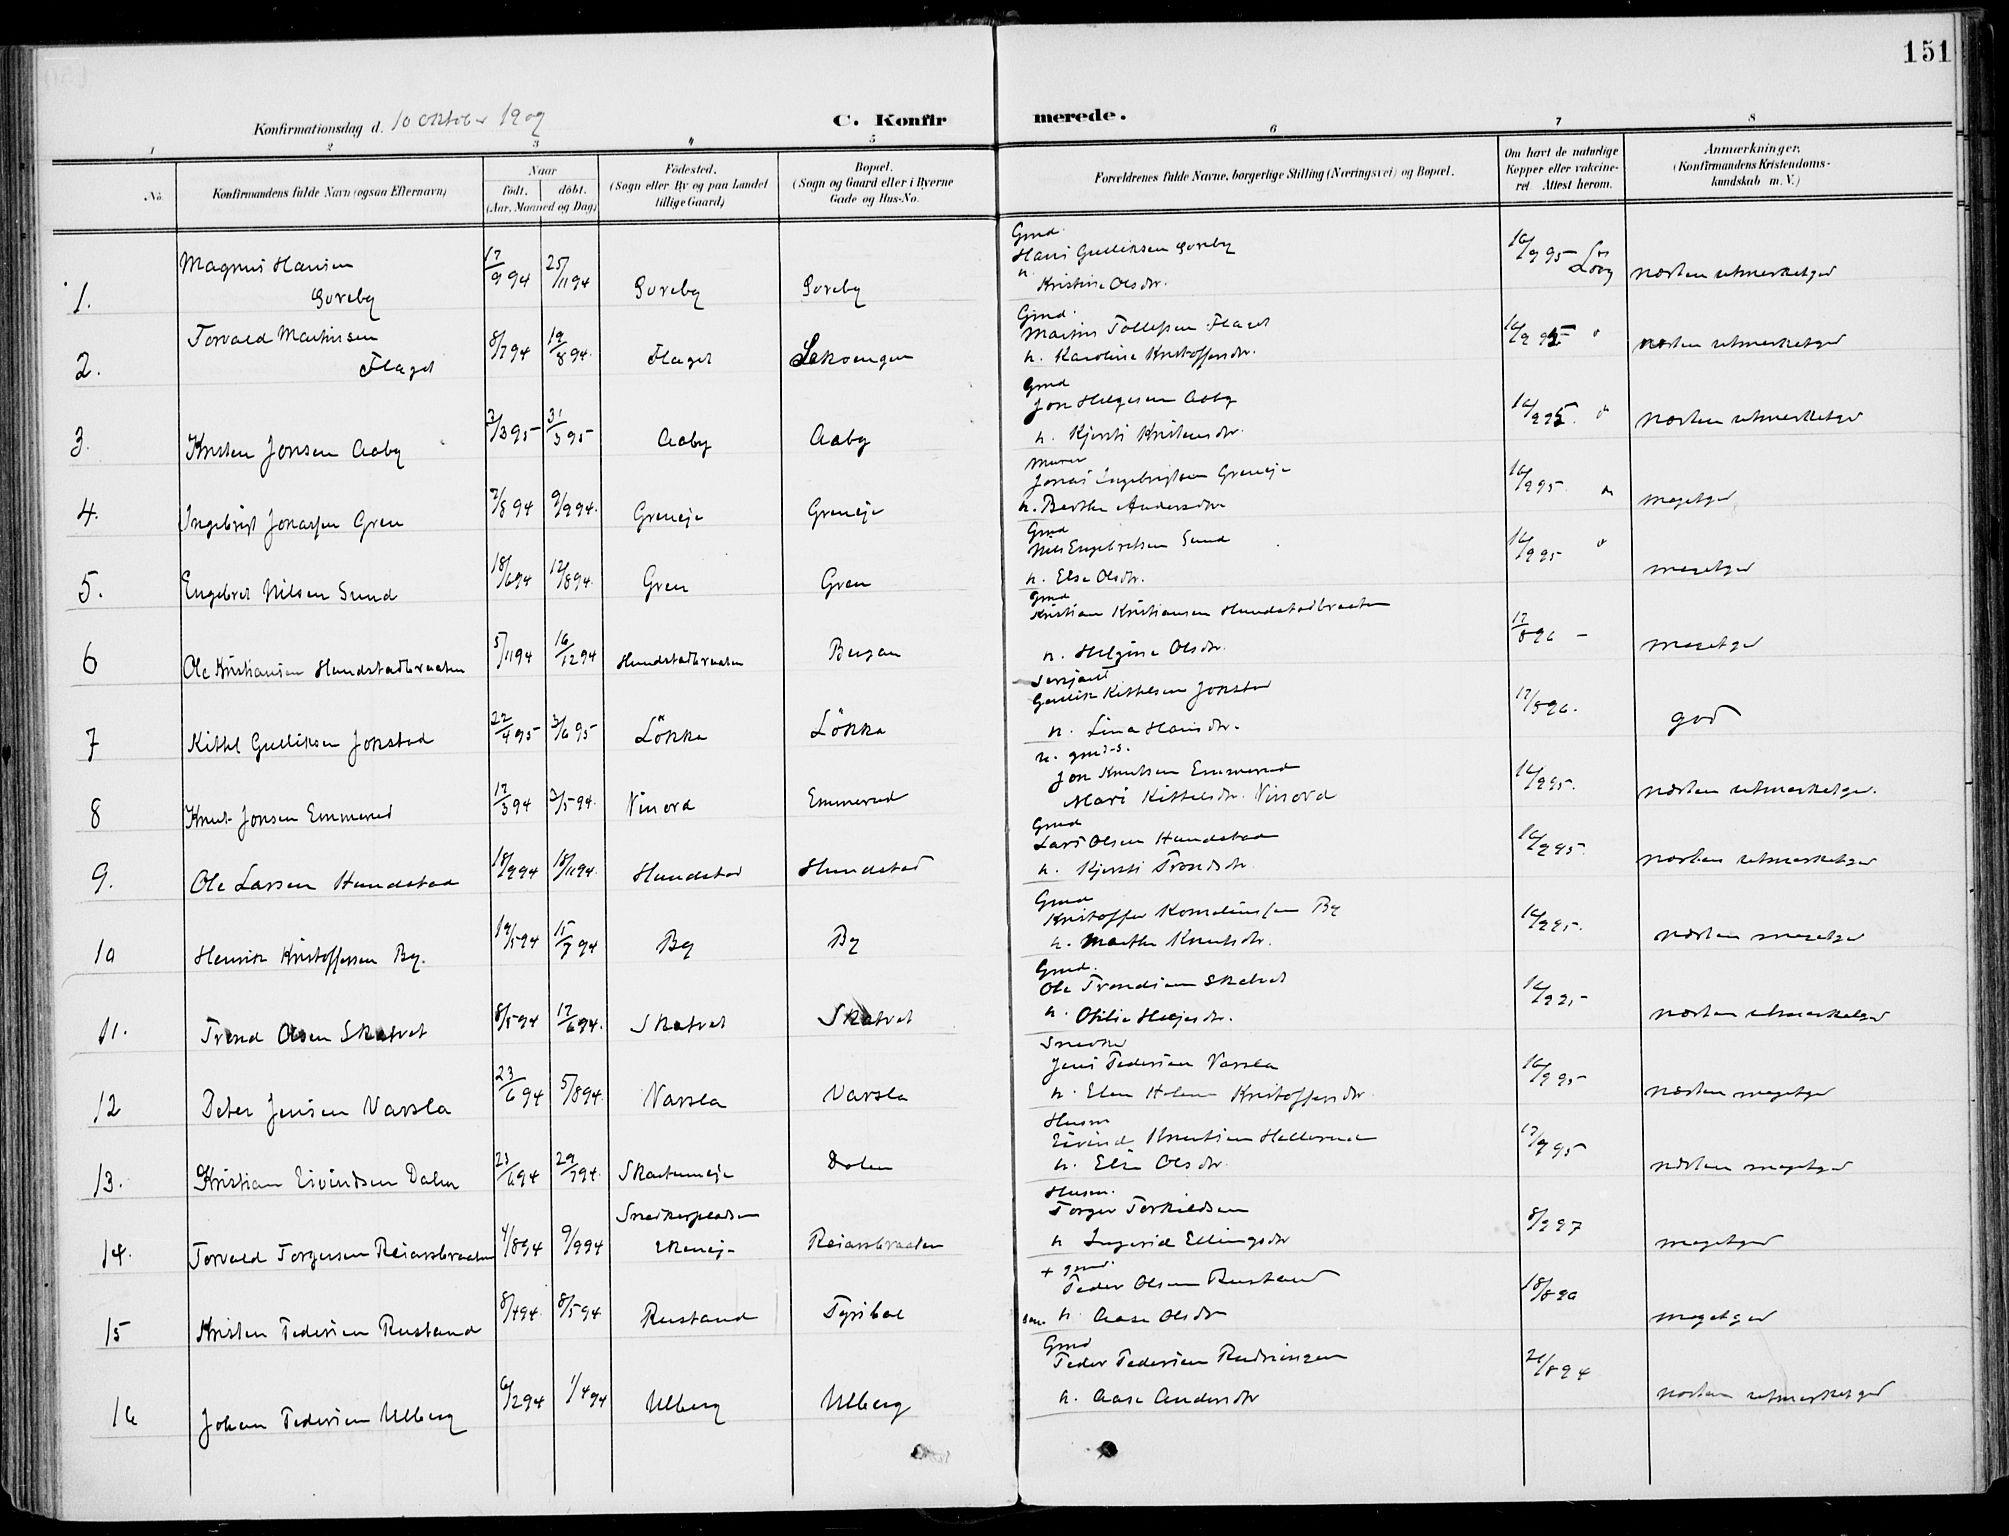 151
Konfirmationsdag d. 10 Oktober 1909
C. Konfirmerede.
1 2 3 4 5 6 7 8
No.
Konfirmandens fulde Navn (ogsaa Efternavn)
Naar
født. døbt.
(Aar, Maaned og Dag)
Fødested.
(Sogn eller By og paa Landet
tillige Gaard)
Bopæl.
(Sogn og Gaard eller i Byerne
Gade og Hus-No.
Forældrenes fulde Navne, borgerlige Stilling (Næringsvei) og Bopæl.
Om havt de naturlige
Kopper eller vakcine-
ret Attest herom.
Anmærkninger.
(Konfirmandens Kristendoms-
kundskab m. V.)
1. Magnus Hansen Goreby 17/9 94 25/11 94 Goreby Goreby
Grmd. Hans Gulliksen Goreby
h. Kristine Olsdr. 16/9 95 næsten utmerketgod
2. Torvald Martinsen Flaget 8/7 94 19/8 94. Flaget
Grmd. Martin Tollefsen Flaget
h. Karoline Kristoffersdr. næsten utmerketgod
3. Kristen Jonsen Aaby 31/3 95 Aaby Aaby
Grmd Jon Helgesen Aaby
h. Kjersti Kristensdr. næsten utmerketgod
4. Ingebrigt Jonassen Gren 7/8 94 9/9 94. Greneje Greneje
Murer Jonas Ingebrigtsen Greneje
h. Berthe Andersdtr 16/9 95. megetgod
5. Engebret Nilsen Sund 18/6 94 12/8 94. Gren Gren
Grmd Nils Engebretsen Sund
h. Else Olsdtr. 16/9 95 megetgod
6 Ole Kristiansen Hundstadbraaten 5/11 94 16/12 94 Hundstadbraaten
Grmd Kristian Kristiansen Hundstadbraaten
h. Helgine Olsdtr. 17/8 96 megetgod
7 Kittel Gulliksen Jonstad 22/4 95 3/6 95 Løkka Løkka
Sersjant Gullik Kittelsen Jonstad
h. Lina Hansdtr. 17/8 96. god
8 Knut Jonsen Emmerud 17/3 94 3/5 94. Vinord Emmerud
u. grmd-s. Jon Knutsen Emmerud
Mari Kittelsdtr. Vinord 16/9 95. næsten utmerketgod.
9. Ole Larsen Hundstad 18/9 94 18/11 94. Hundstad Hundstad
Grmd Lars Olsen Hundstad
h. Kjersti Trondsdtr. 16/9 95. næsten utmerketgod
10 Henrik Kristoffersen By. 19/5 94 15/7 94 By By
Grmd Kristoffer Korneliussen By
h. Marthe Knutsdtr. 16/9 95. næsten megetgod
11. Trond Olsen Skatvet 8/5 94 17/6 94. Skatvet Skatvet
Grmd. Ole Trondsen Skatvet
h. Otilie Helgesdtr. 16/9 95 næsten utmerketgod
12 Peter Jensen Varsla 23/6 94 5/8 94. Varsla Varsla
Snedker Jens Pedersen Varsla
h. Elen Helene Kristoffersdtr. 16/9 95 næsten megetgod
13. Kristian Eivindsen Dalen 23/6 94 29/7 94. Dalen
Husm Eivind Knutsen Hellerud
h. Elin Olsdtr. 17/9 95 næsten megetgod
14. Torvald Torgersen Reiarsbraaten 4/8 94 9/9 94 Snedkerpladsen Reiarsbraaten
Husm. Torger Torkildsen
h Ingerid Ellingsdtr 8/9 97 megetgod
15 Kristen Pedersen Rustand 8/4 94. 8/5 94 Rustand
+ grmd. Peder Olsen Rustand
h. Aase Olsdtr megetgod
16 Johan Pedersen Ulberg 6/2 94 1/4 94 Ulberg Ulberg
Grmd Peder Pedersen
h. Aase Andersdtr næsten utmerketgod